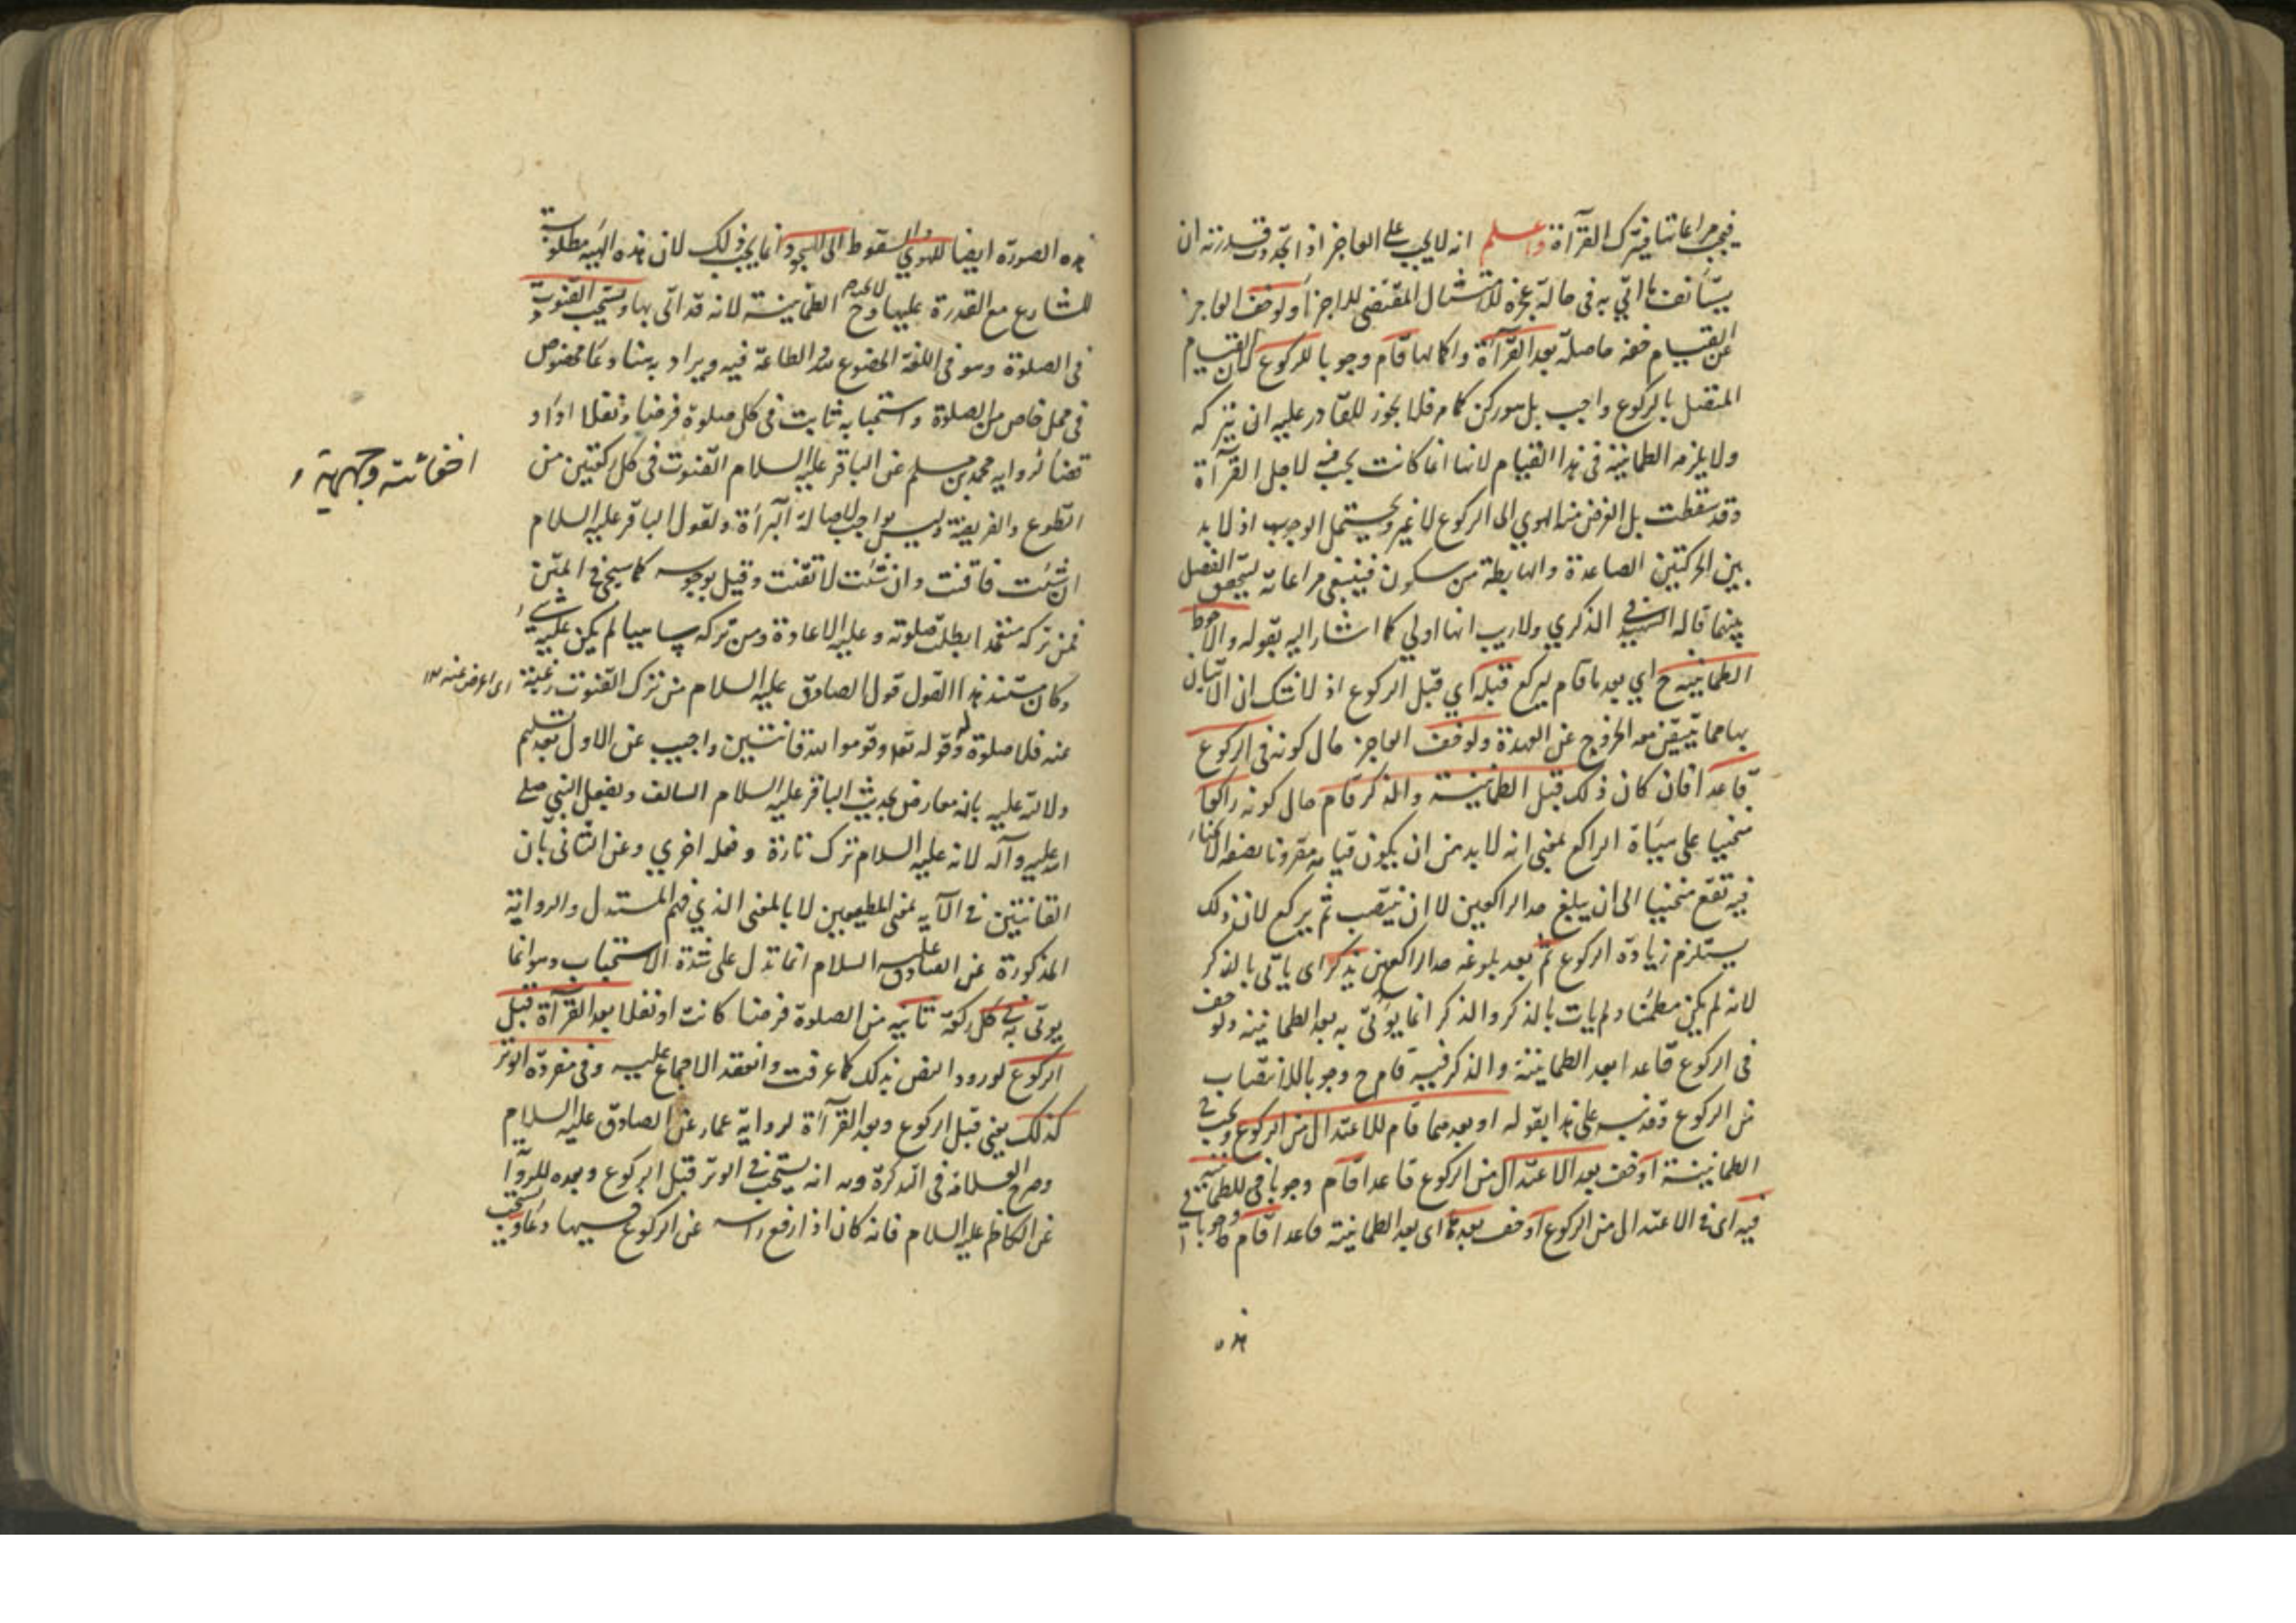 فيجب مراعاتها فيترك القرآءة واعلم انه لا يجب على العاجز اذا تجدد قدرته ان
يستأنف ما اتي به في حالة عجزه للامتثال المقتضي للاجزاء ولو خف العاجز
عن القيام خفة حاصلة بعد القرآءة واكمالها قام وجوبا للركوع لان القيام
المتصل بالركوع واجب بل هو ركن كما مر فلا يجوز للقادر عليه ان يتركه
ولا يلزمه الطمانينة في هذا القيام لانها انما كانت يجب فيه لاجل القرآءة
وقد سقطت بل الغرض منه الهوي الى الركوع لا غير ويحتمل الوجوب اذ لا بد
بين الحركتين الصاعدة والهابطة من سكون فينبغي مراعاته ليتحقق الفصل
بينهما قاله الشهيد في الذكري ولا ريب انها اولي كما اشار اليه بقوله والاحوط
الطمانينة ح اي بعد ما قام ليركع قبله اي قبل الركوع اذ لا شك ان الاتيان
بها مما يتيقن معه الخروج عن العهدة ولو خف العاجز حال كونه في الركوع
قاعدا فان كان ذلك قبل الطمانينة والذكر قام حال كونه راكعا
منحنيا على هيئاة الراكع بمعنى انه لا بد من ان يكون قيامه مقرونا بصفة الانحناء
فيرتفع منحنيا الى ان يبلغ حد الراكعين لا ان ينتصب ثم يركع لان ذلك
يستلزم زيادة الركوع ثم بعد بلوغه حد الراكعين يذكر اى ياتي بالذكر
لانه لم يكن مطمئنا ولم يات بالذكر والذكر انما يؤتى به بعد الطمانينة ولو خف
في الركوع قاعدا بعد الطمانينة والذكر فيه قام ح وجوبا للانتصاب
من الركوع وقد نبه على هذا بقوله او بعدهما قام للاعتدال من الركوع ويجب في
الطمانينة او خف بعد الاعتدال من الركوع قاعدا قام وجوبا للطمانينة
فيه اى في الاعتدال من الركوع او خف بعدها اى بعد الطمانينة قاعدا قام وجوبا في
هذه الصورة ايضا للهوي والسقوط الى السجود وانما يجب ذلك لان هذه الهيئة مطلوبة
للشارع مع القدرة عليها وح لا يجب الطمانينة لانه قد اتى بها ويستحب القنوت
في الصلوة وهو في اللغة الخضوع لله والطاعة فيه ويراد به هنا دعاء مخصوص
في محل خاص من الصلوة واستحبابه ثابت في كل صلوة فرضا ونفلا اداء و
قضاء لرواية محمد بن مسلم عن الباقر عليه السلام القنوت في كل ركعتين من
اخفاتية وجهرية
التطوع والفريضة وليس بواجب لاصالة البرآءة ولقول الباقر عليه السلام
ان شئت فاقنت وان شئت لا تقنت وقيل بوجوبه كما سيجئ في المتن
فمن تركه متعمدا بطلت صلوته وعليه الاعادة ومن تركه ساهيا لم يكن عليه شيء
وكان مستند هذا القول قول الصادق عليه السلام من ترك القنوت رغبة
اى اعرض عنه ١٢
عنه فلا صلوة له وقوله تعا وقوموا لله قانتين واجيب عن الاول بعد تسليم
دلالته عليه بانه معارض بحديث الباقر عليه السلام السالف وبفعل النبي صلى
الله عليه وآله لانه عليه السلام تركه تارة وفعله اخري وعن الثاني بان
القانتين في الآية بمعنى المطيعين لا بالمعنى الذي فهم المستدل والرواية
المذكورة عن الصادق عليه السلام انما تدل على شدة الاستحباب وهو انما
يوتى به في كل ركعة ثانية من الصلوة فرضا كانت او نفلا بعد القرآءة قبل
الركوع لورود النص بذلك كما عرفت وانعقد الاجماع عليه وفي مفردة الوتر
كذلك يعني قبل الركوع وبعد القرآءة لرواية عمار عن الصادق عليه السلام
وصرح العلامة في التذكرة انه يستحب في الوتر قبل الركوع وبعده للرواية
عن الكاظم عليه السلام فانه كان اذا رفع راسه عن الركوع فيها دعا ويستحب